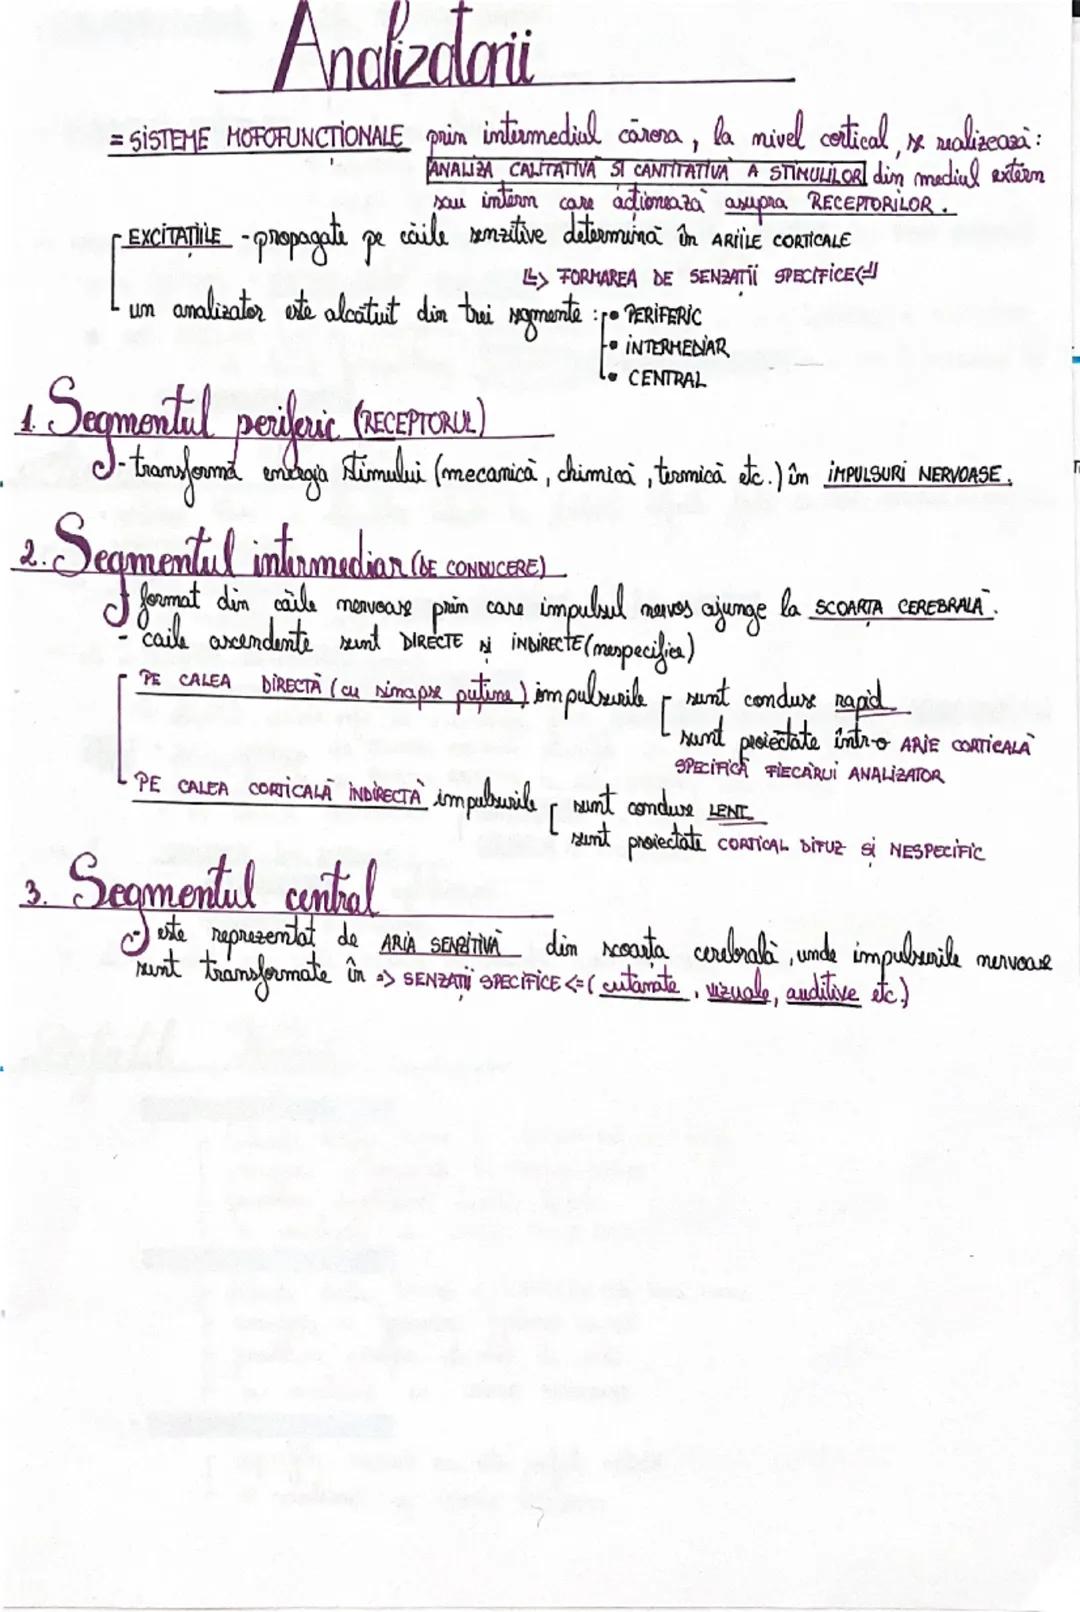 Analizatorii
= SISTEME MOFOFUNCTIONALE prin intermediul cărora, la nivel cortical, se realizează:
ANALIZA CALITATIVĂ SI CANTITATIVĂ A STIMULILOR din mediul extern
sau intern care acționează asupra RECEPTORILOR.
EXCITAȚIILE - propagate pe căile senzitive determină în ARIILE CORTICALE
↳> FORMAREA DE SENZAȚII SPECIFICE <↲
un analizator este alcătuit din trei segmente: • PERIFERIC
• INTERMEDIAR
• CENTRAL
1. Segmentul periferic (RECEPTORUL)
- transformă energia stimului (mecanică, chimică, termică etc.) în IMPULSURI NERVOASE.
2. Segmentul intermediar (DE CONDUCERE)
format din căile nervoase prin care impulsul nervos ajunge la SCOARȚA CEREBRALĂ.
- căile ascendente sunt DIRECTE și INDIRECTE (nespecifice)
PE CALEA DIRECTĂ (cu sinapse puține) impulsurile sunt conduse rapid
sunt proiectate într-o ARIE CORTICALĂ
SPECIFICĂ FIECĂRUI ANALIZATOR
PE CALEA CORTICALĂ INDIRECTĂ impulsurile sunt conduse LENT
sunt proiectate CORTICAL DIFUZ și NESPECIFIC
3. Segmentul central
- este reprezentat de ARIA SENZITIVĂ din scoarța cerebrală, unde impulsurile nervoase
sunt transformate în => SENZAȚII SPECIFICE <= (cutanate, vizuale, auditive etc.)